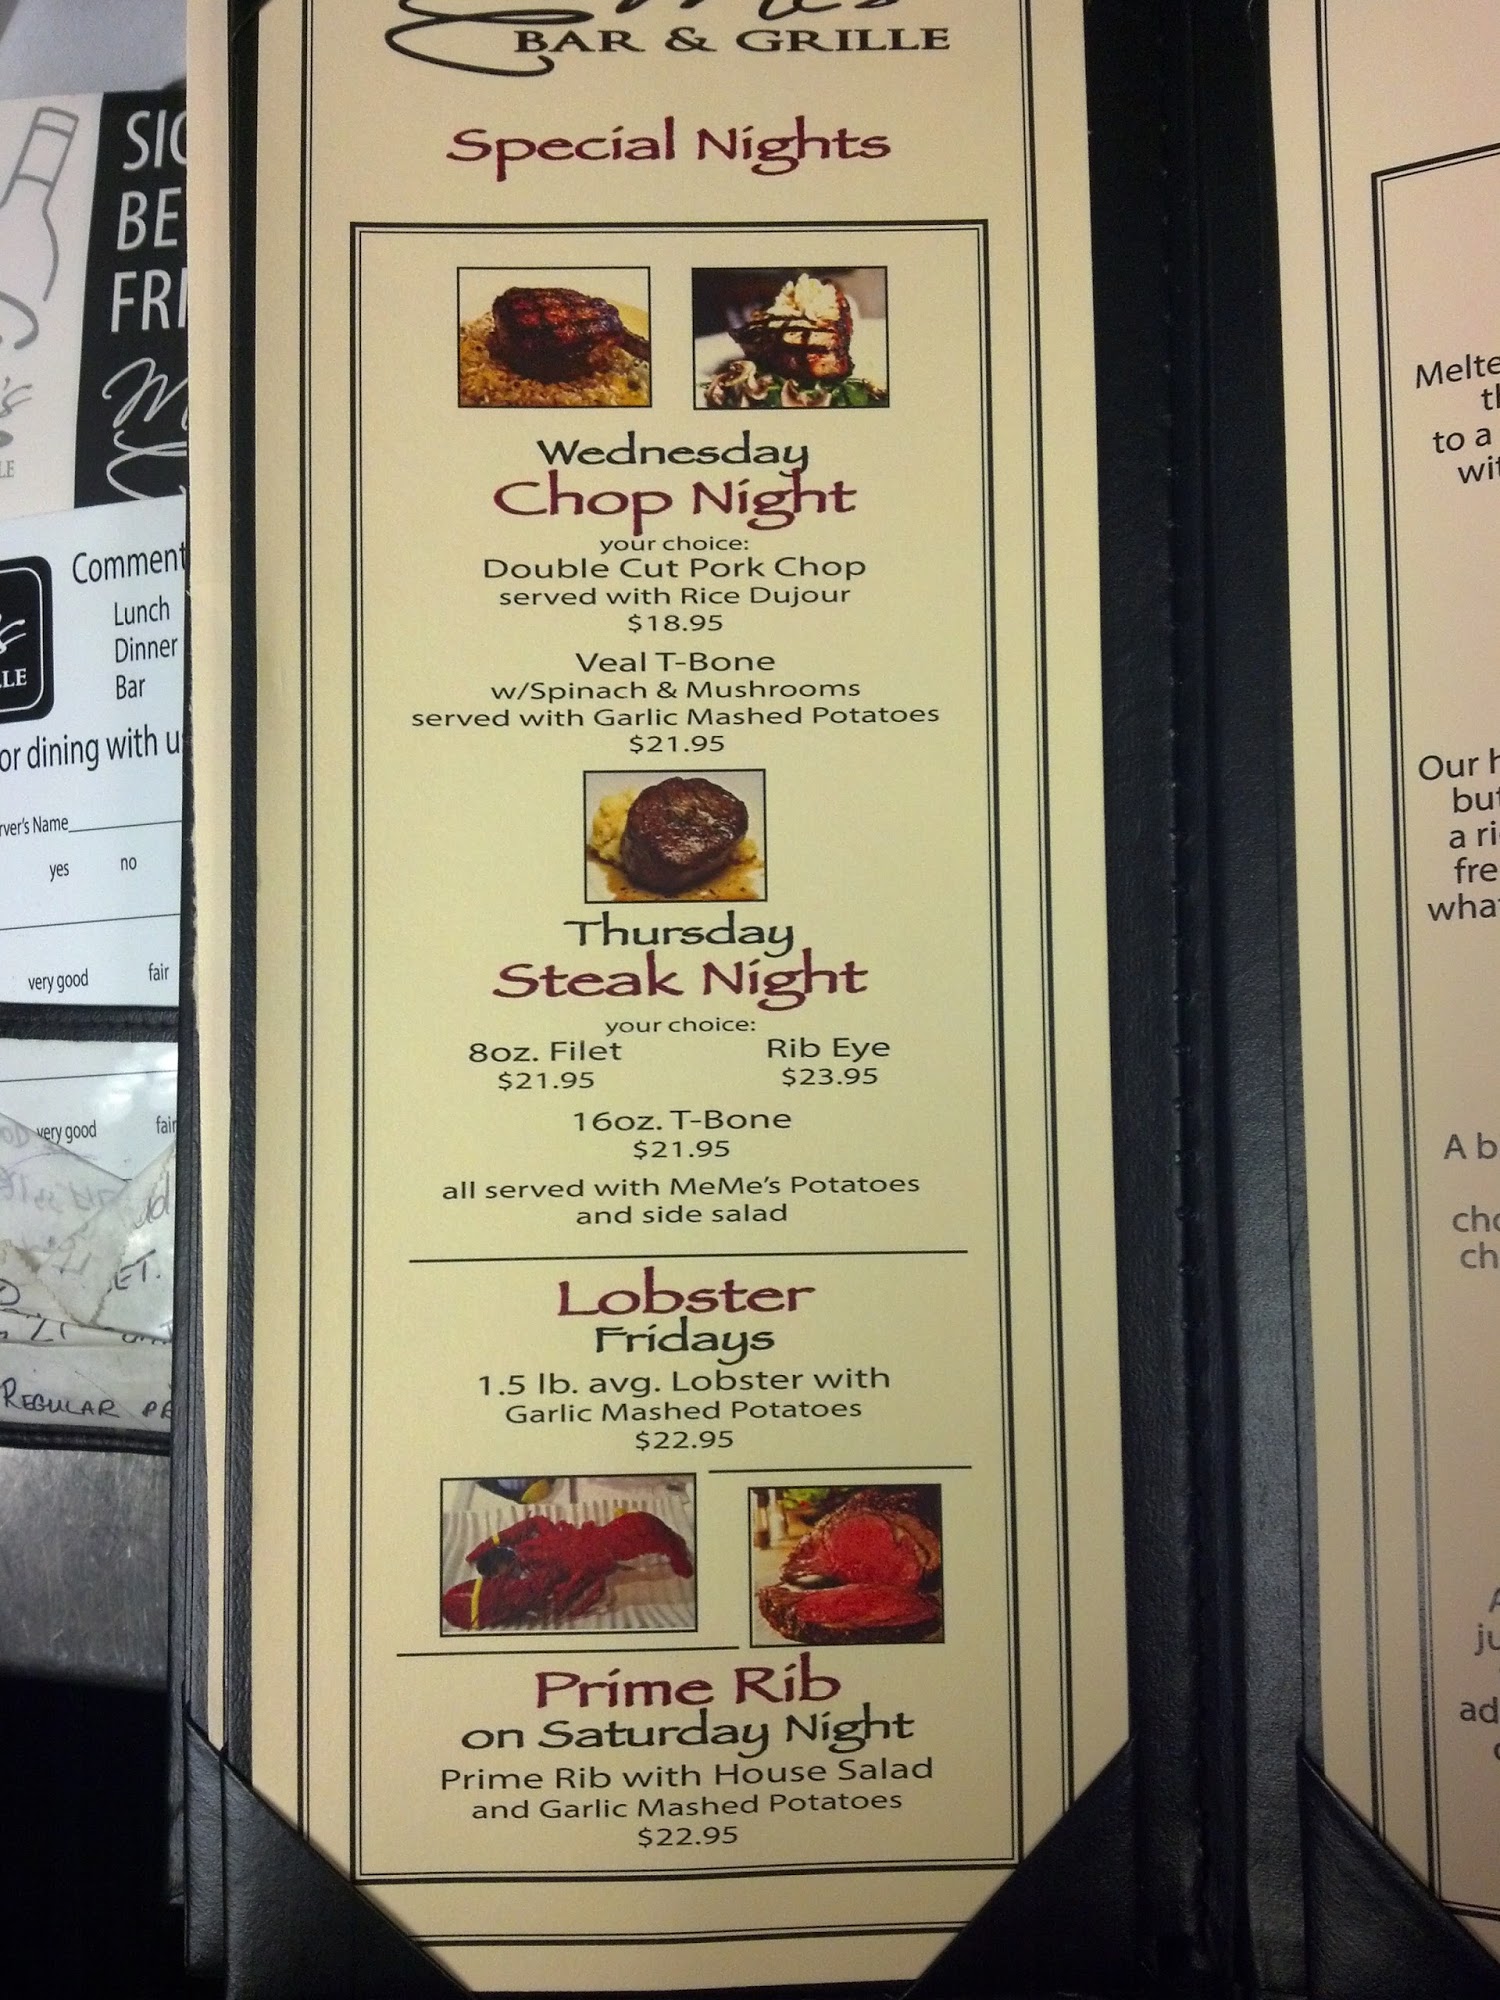 BAR & GRILLE
Special Nights
Wednesday
Chop Night
your choice:
Double Cut Pork Chop
served with Rice Dujour
$18.95
Veal T-Bone
w/Spinach & Mushrooms
served with Garlic Mashed Potatoes
$21.95
Thursday
Steak Night
your choice:
8oz. Filet
$21.95
Rib Eye
$23.95
16oz. T-Bone
$21.95
all served with MeMe's Potatoes
and side salad
Lobster
Fridays
1.5 lb. avg. Lobster with
Garlic Mashed Potatoes
$22.95
Prime Rib
on Saturday Night
Prime Rib with House Salad
and Garlic Mashed Potatoes
$22.95
BE
Comment
Lunch
Dinner
Bar
or dining with u
rver's Name
yes no
very good fair
very good fair
ET.
REGULAR
Melte
to a
wit
Our h
but
a ri
fre
what
A b
cho
ch
A
ju
ad